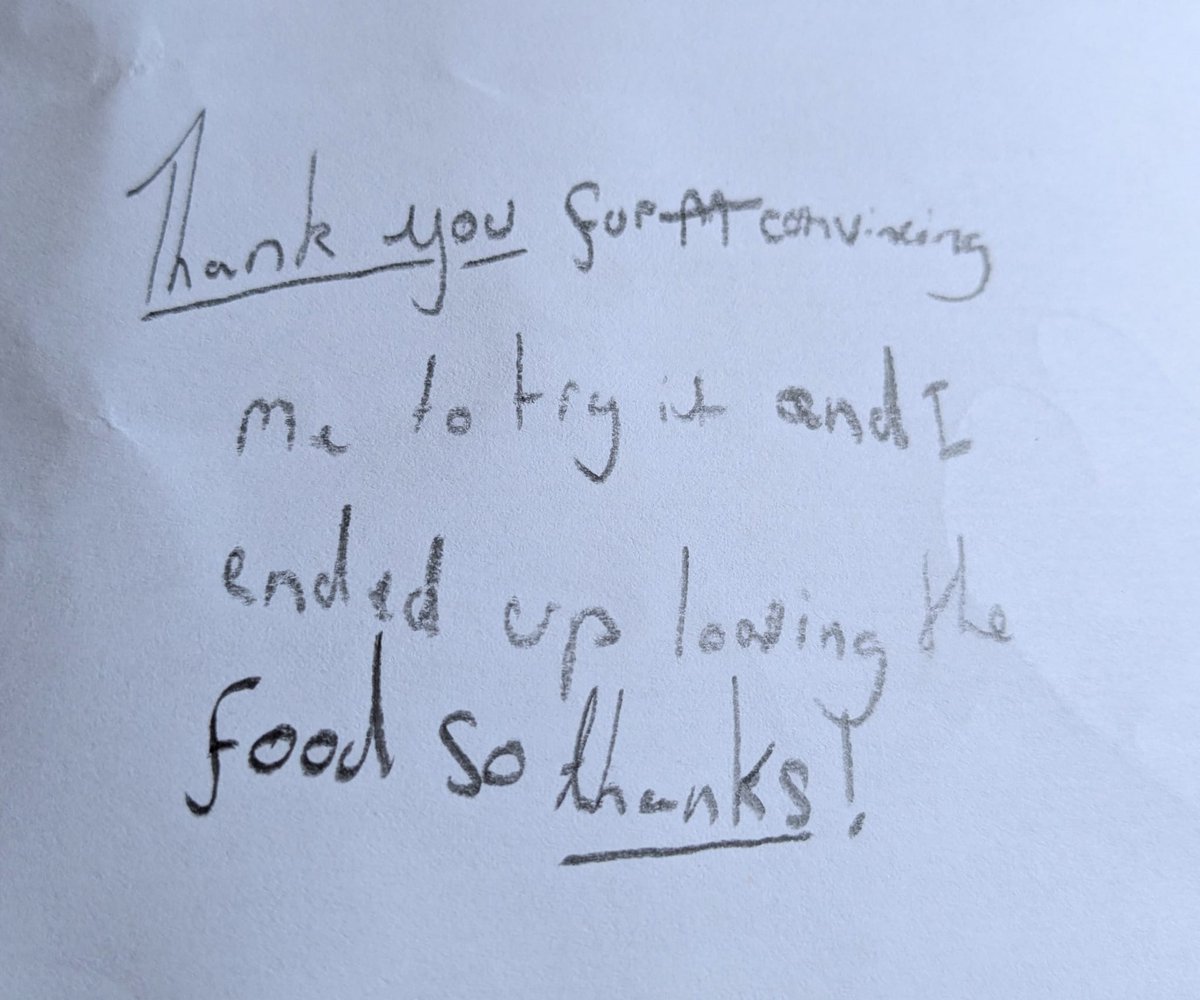 Thank you for convincing
me to try it and I
ended up loving the
food so thanks!